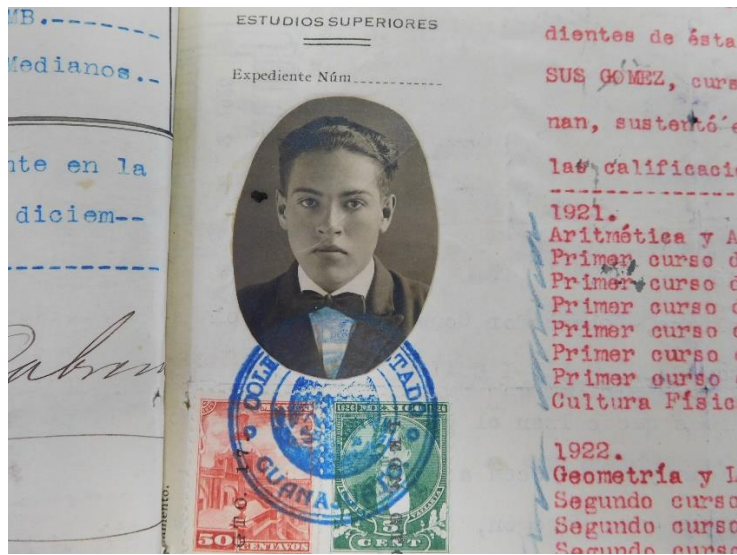 MB.-------
Medianos.-
nte en la
diciem--
ESTUDIOS SUPERIORES
Expediente Núm.
COLE
ESTADO
GUANAJUATO.
50 CENTAVOS
1826 MEXICO 1926
5
CENT
dientes de ésta
SUS GOMEZ, curs
nan, sustentó e
las calificaci
1921.
Aritmética y A
Primer curso d
Primer curso d
Primer curso
Primer curso
Primer curso
Primer curso
Cultura Físic
1922.
Geometría y L
Segundo curso
Segundo curso
Segundo curso